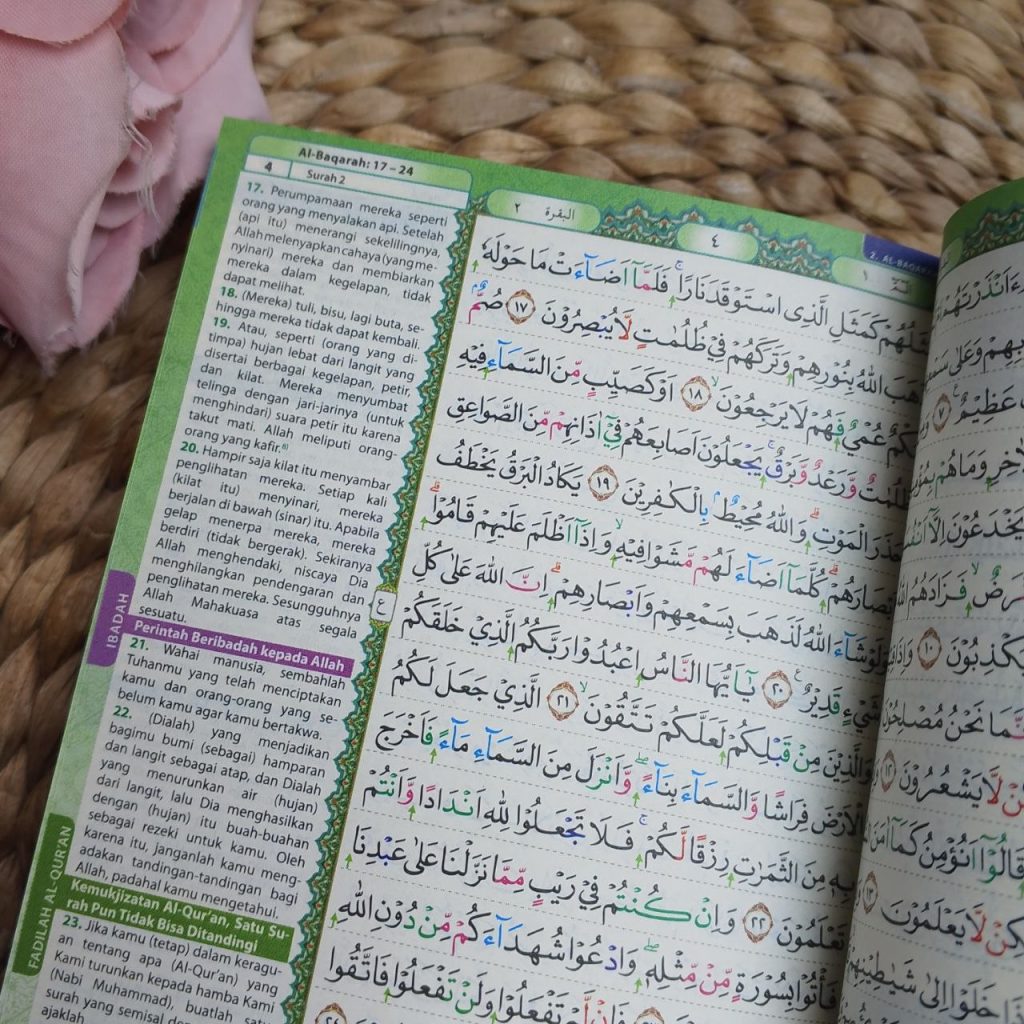 Al-Baqarah: 17 – 24
4
Surah 2
17. Perumpamaan mereka seperti
orang yang menyalakan api. Setelah
(api itu) menerangi sekelilingnya,
Allah melenyapkan cahaya (yang me-
nyinari) mereka dan membiarkan
mereka dalam kegelapan, tidak
dapat melihat.
18. (Mereka) tuli, bisu, lagi buta, se-
hingga mereka tidak dapat kembali.
19. Atau, seperti (orang yang di-
timpa) hujan lebat dari langit yang
disertai berbagai kegelapan, petir,
dan kilat. Mereka menyumbat
telinga dengan jari-jarinya (untuk
menghindari) suara petir itu karena
takut mati. Allah meliputi orang-
orang yang kafir.⁸⁾
20. Hampir saja kilat itu menyambar
penglihatan mereka. Setiap kali
(kilat itu) menyinari, mereka
berjalan di bawah (sinar) itu. Apabila
gelap menerpa mereka, mereka
berdiri (tidak bergerak). Sekiranya
Allah menghendaki, niscaya Dia
menghilangkan pendengaran dan
penglihatan mereka. Sesungguhnya
Allah Mahakuasa atas segala
sesuatu.
IBADAH
Perintah Beribadah kepada Allah
21. Wahai manusia, sembahlah
Tuhanmu yang telah menciptakan
kamu dan orang-orang yang se-
belum kamu agar kamu bertakwa.
22. (Dialah) yang menjadikan
bagimu bumi (sebagai) hamparan
dan langit sebagai atap, dan Dialah
yang menurunkan air (hujan)
dari langit, lalu Dia menghasilkan
dengan (hujan) itu buah-buahan
sebagai rezeki untuk kamu. Oleh
karena itu, janganlah kamu meng-
adakan tandingan-tandingan bagi
Allah, padahal kamu mengetahui.
FADILAH AL-QUR'AN
Kemukjizatan Al-Qur'an, Satu Su-
rah Pun Tidak Bisa Ditandingi
23. Jika kamu (tetap) dalam keragu-
an tentang apa (Al-Qur'an) yang
Kami turunkan kepada hamba Kami
(Nabi Muhammad), buatlah satu
surah yang semisal
ajaklah
البقرة ٢
٤
١
2. AL-BAQARAH
كَمَثَلِ الَّذِى اسْتَوْقَدَ نَارًاۚ فَلَمَّآ اَضَاۤءَتْ مَا حَوْلَهٗ
اللّٰهُ بِنُوْرِهِمْ وَتَرَكَهُمْ فِيْ ظُلُمٰتٍ لَّا يُبْصِرُوْنَ ١٧ صُمٌّۢ
عُمْيٌ فَهُمْ لَا يَرْجِعُوْنَۙ ١٨ اَوْ كَصَيِّبٍ مِّنَ السَّمَاۤءِ فِيْهِ
وَّرَعْدٌ وَّبَرْقٌۚ يَجْعَلُوْنَ اَصَابِعَهُمْ فِيْٓ اٰذَانِهِمْ مِّنَ الصَّوَاعِقِ
الْمَوْتِۗ وَاللّٰهُ مُحِيْطٌۢ بِالْكٰفِرِيْنَ ١٩ يَكَادُ الْبَرْقُ يَخْطَفُ
كُلَّمَآ اَضَاۤءَ لَهُمْ مَّشَوْا فِيْهِۙ وَاِذَآ اَظْلَمَ عَلَيْهِمْ قَامُوْاۗ
شَاۤءَ اللّٰهُ لَذَهَبَ بِسَمْعِهِمْ وَاَبْصَارِهِمْۗ اِنَّ اللّٰهَ عَلٰى كُلِّ
شَيْءٍ قَدِيْرٌࣖ ٢٠ يٰٓاَيُّهَا النَّاسُ اعْبُدُوْا رَبَّكُمُ الَّذِيْ خَلَقَكُمْ
وَالَّذِيْنَ مِنْ قَبْلِكُمْ لَعَلَّكُمْ تَتَّقُوْنَۙ ٢١ الَّذِيْ جَعَلَ لَكُمُ
الْاَرْضَ فِرَاشًا وَّالسَّمَاۤءَ بِنَاۤءًۖ وَّاَنْزَلَ مِنَ السَّمَاۤءِ مَاۤءً فَاَخْرَجَ
بِهٖ مِنَ الثَّمَرٰتِ رِزْقًا لَّكُمْۚ فَلَا تَجْعَلُوْا لِلّٰهِ اَنْدَادًا وَّاَنْتُمْ
تَعْلَمُوْنَ ٢٢ وَاِنْ كُنْتُمْ فِيْ رَيْبٍ مِّمَّا نَزَّلْنَا عَلٰى عَبْدِنَا
فَأْتُوْا بِسُوْرَةٍ مِّنْ مِّثْلِهٖۖ وَادْعُوْا شُهَدَاۤءَكُمْ مِّنْ دُوْنِ اللّٰهِ
تَفْعَلُوْا وَلَنْ تَفْعَلُوْا فَاتَّقُوا
عَظِيْمٌࣖ ٧
فَزَادَهُمُ اللّٰهُ
يَكْذِبُوْنَ ١٠
نَحْنُ مُصْلِحُوْنَ
لَّا يَشْعُرُوْنَ ١٢
قَالُوْٓا اَنُؤْمِنُ كَمَآ
لَّا يَعْلَمُوْنَ ١٣
خَلَوْا اِلٰى شَيٰطِيْنِهِمْ